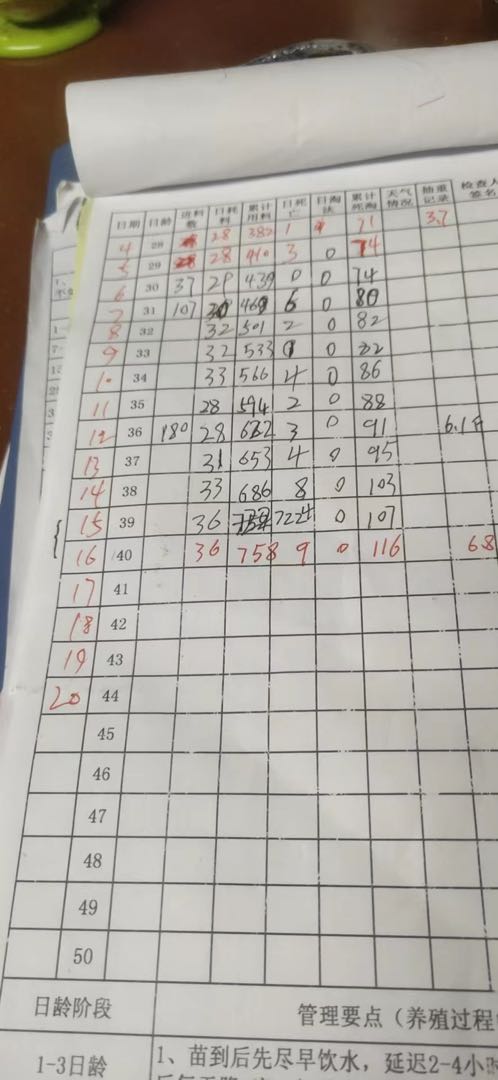 日期 日龄 进料数 日耗料 累计用料 日死亡 日淘汰 累计死淘 天气情况 抽重记录 检查人签名
4 28 28 382 1 71 3.7
5 29 28 410 3 0 74
6 30 37 29 439 0 0 74
7 31 107 30 469 6 0 80
8 32 32 501 2 0 82
9 33 32 533 0 0 82
10 34 33 566 4 0 86
11 35 28 594 2 0 88
12 36 180 28 622 3 0 91 6.1斤
13 37 31 653 4 0 95
14 38 33 686 8 0 103
15 39 36 722 4 0 107
16 40 36 758 9 0 116 6.8
17 41
18 42
19 43
20 44
45
46
47
48
49
50
日龄阶段 管理要点（养殖过程
1-3日龄 1、苗到后先尽早饮水，延迟2-4小时